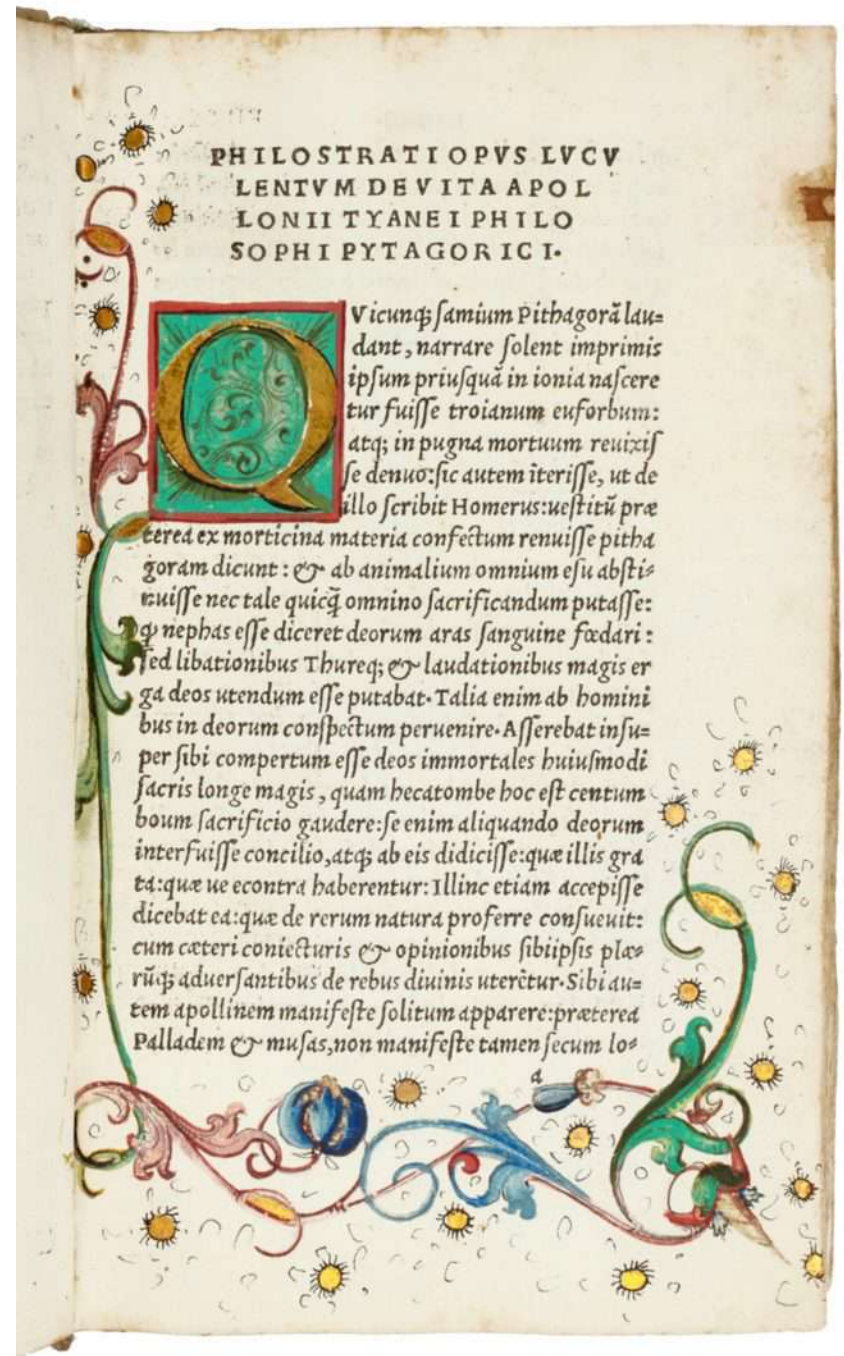 PHILOSTRATI OPVS LVCV
LENTVM DE VITA APOL
LONII TYANEI PHILO
SOPHI PYTAGORICI.
QVicunq; ſamium Pithagorã lau=
dant, narrare ſolent imprimis
ipſum priuſquã in ionia naſcere
tur fuiſſe troianum euforbum:
atq; in pugna mortuum reuixiſ
ſe denuo: ſic autem ĩteriſſe, ut de
illo ſcribit Homerus: ueſtitũ præ
terea ex morticina materia confectum renuiſſe pitha
goram dicunt: & ab animalium omnium eſu abſti=
nuiſſe nec tale quicq̃ omnino ſacrificandum putaſſe:
ꝙ nephas eſſe diceret deorum aras ſanguine fœdari:
ſed libationibus Thureq; & laudationibus magis er
ga deos utendum eſſe putabat. Talia enim ab homini
bus in deorum conſpectum peruenire. Aſſerebat inſu=
per ſibi compertum eſſe deos immortales huiuſmodi
ſacris longe magis, quam hecatombe hoc eſt centum
boum ſacrificio gaudere: ſe enim aliquando deorum
interfuiſſe concilio, atq; ab eis didiciſſe: quæ illis gra
ta: quæ ue econtra haberentur: Illinc etiam accepiſſe
dicebat ea: quæ de rerum natura proferre conſueuit:
cum cæteri coniecturis & opinionibus ſibiipſis plæ=
rũq; aduerſantibus de rebus diuinis uterẽtur. Sibi au=
tem apollinem manifeſte ſolitum apparere: præterea
Palladem & muſas, non manifeſte tamen ſecum lo=
a